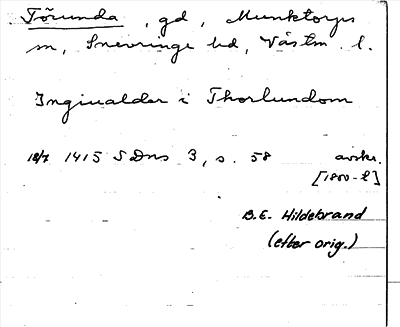 Törunda, gd, Munktorps
sn, Snevringe hd, Västm. l.
Ingiualder i Thorlundom
18/7 1415 SDns 3, s. 58 avskr.
[1800-t]
B.E. Hildebrand
(efter orig.)